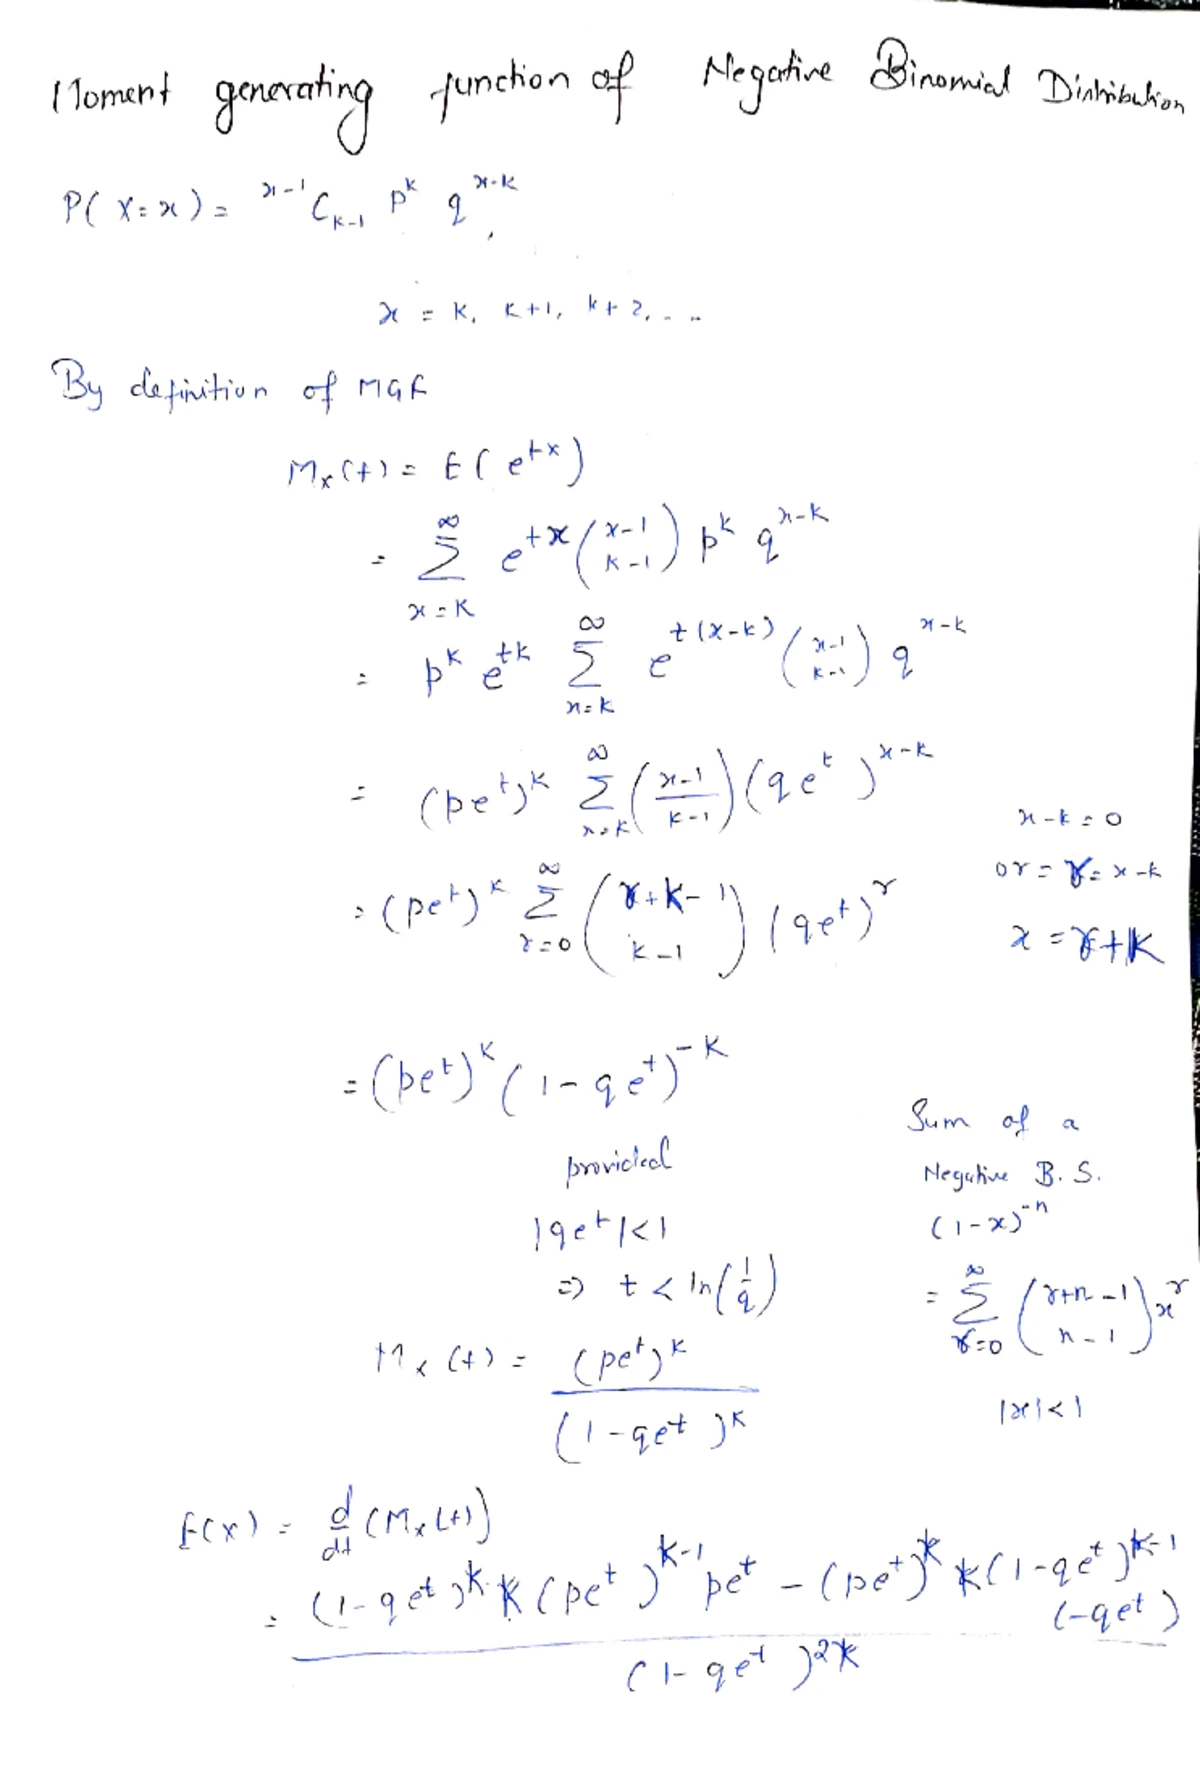 Moment generating function of Negative Binomial Distribution
P(X=x) = ˣ⁻¹C_{k-1} p^k q^{x-k},
x = k, k+1, k+2, ....
By definition of MGF
M_x(t) = E(e^{tx})
= ∑_{x=k}^{∞} e^{tx} (x-1 k-1) p^k q^{x-k}
= p^k e^{tk} ∑_{x=k}^{∞} e^{t(x-k)} (x-1 k-1) q^{x-k}
= (pe^t)^k ∑_{x=k}^{∞} (x-1/k-1) (qe^t)^{x-k}
x-k=0
or = r = x-k
x = r+k
= (pe^t)^k ∑_{r=0}^{∞} (r+k-1 k-1) (qe^t)^r
= (pe^t)^k (1-qe^t)^{-k}
provided
|qe^t|<1
⇒ t < ln(1/q)
Sum of a
Negative B.S.
(1-x)^{-n}
= ∑_{r=0}^{∞} (r+n-1 n-1) x^r
|x|<1
M_x(t) = (pe^t)^k / (1-qe^t)^k
E(x) = d/dt (M_x(t))
= (1-qe^t)^k · k(pe^t)^{k-1} pe^t - (pe^t)^k k(1-qe^t)^{k-1} (-qe^t) / (1-qe^t)^{2k}